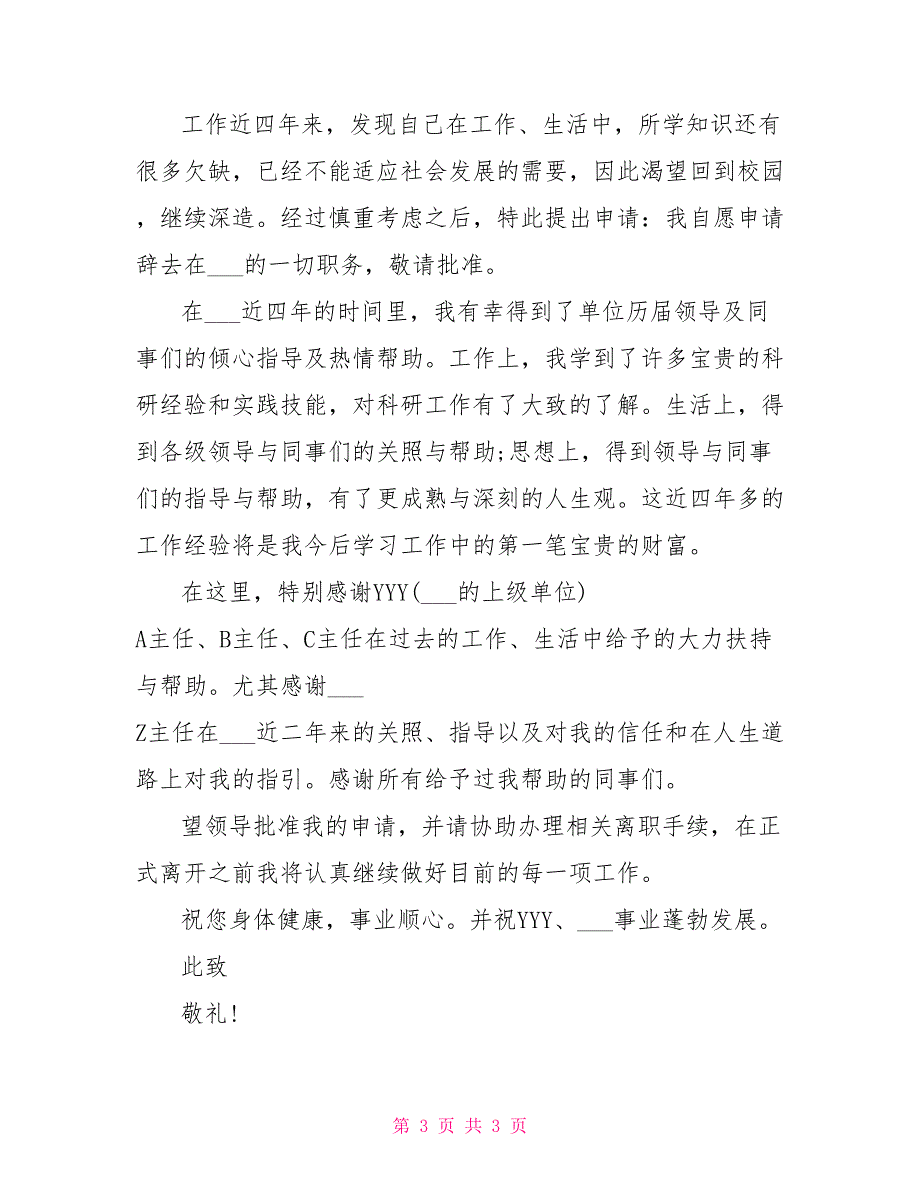 工作近四年来，发现自己在工作、生活中，所学知识还有
很多欠缺，已经不能适应社会发展的需要，因此渴望回到校园
，继续深造。经过慎重考虑之后，特此提出申请：我自愿申请
辞去在___的一切职务，敬请批准。
在___近四年的时间里，我有幸得到了单位历届领导及同
事们的倾心指导及热情帮助。工作上，我学到了许多宝贵的科
研经验和实践技能，对科研工作有了大致的了解。生活上，得
到各级领导与同事们的关照与帮助;思想上，得到领导与同事
们的指导与帮助，有了更成熟与深刻的人生观。这近四年多的
工作经验将是我今后学习工作中的第一笔宝贵的财富。
在这里，特别感谢YYY(___的上级单位)
A主任、B主任、C主任在过去的工作、生活中给予的大力扶持
与帮助。尤其感谢___
Z主任在___近二年来的关照、指导以及对我的信任和在人生道
路上对我的指引。感谢所有给予过我帮助的同事们。
望领导批准我的申请，并请协助办理相关离职手续，在正
式离开之前我将认真继续做好目前的每一项工作。
祝您身体健康，事业顺心。并祝YYY、___事业蓬勃发展。
此致
敬礼!
第 3 页 共 3 页